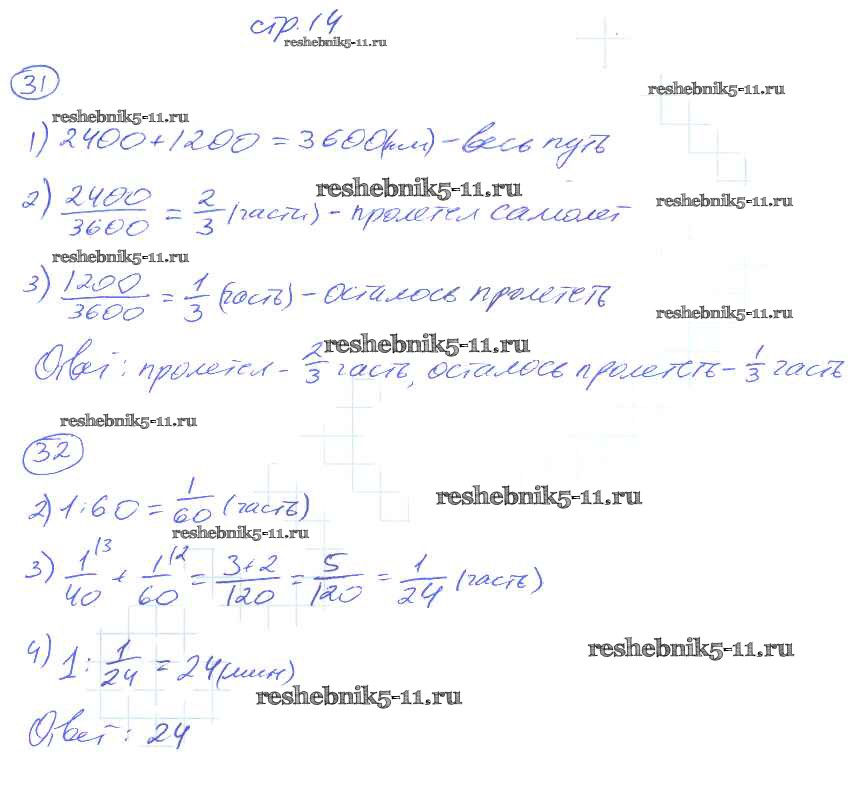 стр. 14
reshebnik5-11.ru
31
reshebnik5-11.ru
reshebnik5-11.ru
1) 2400 + 1200 = 3600 (км) - весь путь
reshebnik5-11.ru
reshebnik5-11.ru
2) 2400/3600 = 2/3 (части) - пролетел самолет
reshebnik5-11.ru
3) 1200/3600 = 1/3 (часть) - осталось пролететь
reshebnik5-11.ru
reshebnik5-11.ru
Ответ: пролетел - 2/3 часть, осталось пролететь - 1/3 часть
reshebnik5-11.ru
32
reshebnik5-11.ru
2) 1 : 60 = 1/60 (часть)
reshebnik5-11.ru
3) 1/40 |3 + 1/60 |2 = 3+2/120 = 5/120 = 1/24 (часть)
reshebnik5-11.ru
4) 1 : 1/24 = 24 (мин)
reshebnik5-11.ru
Ответ: 24